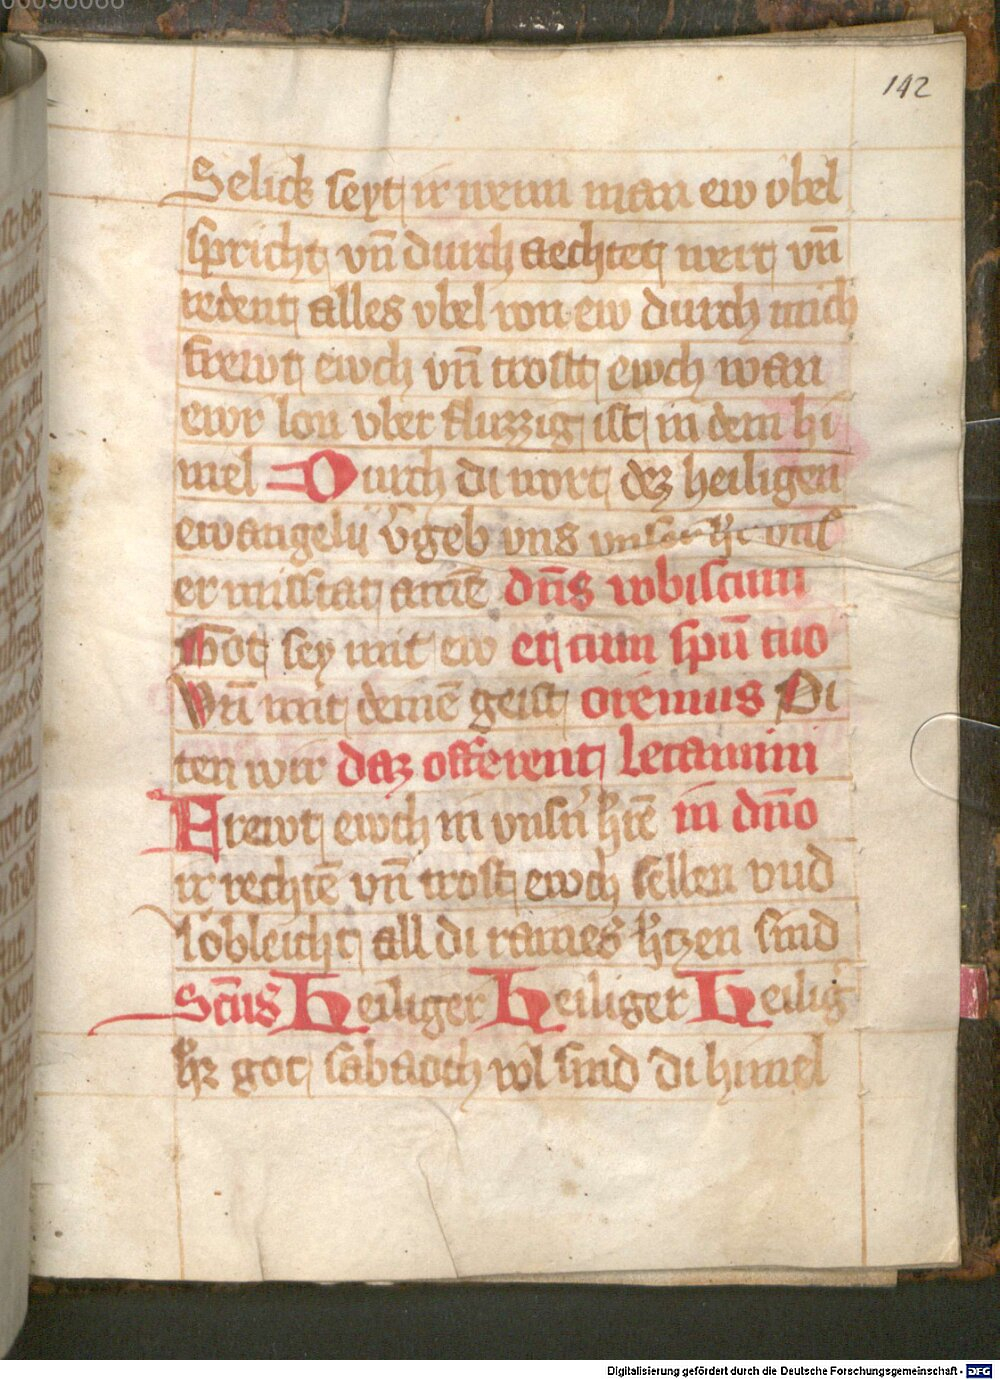 142
Selick seyt ir wenn man ew v̈bel
spricht vn̄ durch aechtet weit vn̄
redent alles vbel von ew durch mich
frewt ewch vn̄ trostt ewch wan
ewr lon vber fluzzig ist in dem hi
mel Durch di wort dez heiligen
ewangelij v̓geb vns vnser h̓r vns
er missitat amē dn̄s vobiscum
Got sey mit ew et cum spū tuo
Vn̄ mit deinē geist oremus Pi
ten wir daz offerent Letamini
Frewt ewch in vnsn̓ h̓rē in dn̄o
ir rechtē vn̄ trost ewch sellen vnd
lobleicht all di raines h̓tzen sind
Sc̄us Heiliger Heiliger Heilig̓
h̓r got sabaoth vol sind di himel
Digitalisierung gefördert durch die Deutsche Forschungsgemeinschaft - DFG